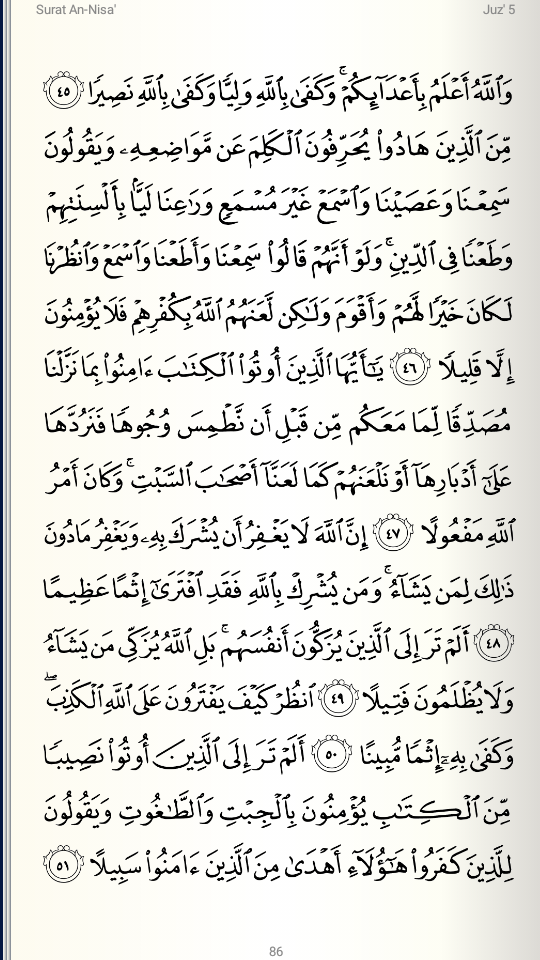 Surat An-Nisa' Juz' 5
وَٱللَّهُ أَعْلَمُ بِأَعْدَآئِكُمْ ۚ وَكَفَىٰ بِٱللَّهِ وَلِيًّا وَكَفَىٰ بِٱللَّهِ نَصِيرًا ٤٥
مِّنَ ٱلَّذِينَ هَادُوا۟ يُحَرِّفُونَ ٱلْكَلِمَ عَن مَّوَاضِعِهِۦ وَيَقُولُونَ
سَمِعْنَا وَعَصَيْنَا وَٱسْمَعْ غَيْرَ مُسْمَعٍ وَرَٰعِنَا لَيًّۢا بِأَلْسِنَتِهِمْ
وَطَعْنًا فِى ٱلدِّينِ ۚ وَلَوْ أَنَّهُمْ قَالُوا۟ سَمِعْنَا وَأَطَعْنَا وَٱسْمَعْ وَٱنظُرْنَا
لَكَانَ خَيْرًا لَّهُمْ وَأَقْوَمَ وَلَٰكِن لَّعَنَهُمُ ٱللَّهُ بِكُفْرِهِمْ فَلَا يُؤْمِنُونَ
إِلَّا قَلِيلًا ٤٦ يَٰٓأَيُّهَا ٱلَّذِينَ أُوتُوا۟ ٱلْكِتَٰبَ ءَامِنُوا۟ بِمَا نَزَّلْنَا
مُصَدِّقًا لِّمَا مَعَكُم مِّن قَبْلِ أَن نَّطْمِسَ وُجُوهًا فَنَرُدَّهَا
عَلَىٰٓ أَدْبَارِهَآ أَوْ نَلْعَنَهُمْ كَمَا لَعَنَّآ أَصْحَٰبَ ٱلسَّبْتِ ۚ وَكَانَ أَمْرُ
ٱللَّهِ مَفْعُولًا ٤٧ إِنَّ ٱللَّهَ لَا يَغْفِرُ أَن يُشْرَكَ بِهِۦ وَيَغْفِرُ مَا دُونَ
ذَٰلِكَ لِمَن يَشَآءُ ۚ وَمَن يُشْرِكْ بِٱللَّهِ فَقَدِ ٱفْتَرَىٰٓ إِثْمًا عَظِيمًا
٤٨ أَلَمْ تَرَ إِلَى ٱلَّذِينَ يُزَكُّونَ أَنفُسَهُم ۚ بَلِ ٱللَّهُ يُزَكِّى مَن يَشَآءُ
وَلَا يُظْلَمُونَ فَتِيلًا ٤٩ ٱنظُرْ كَيْفَ يَفْتَرُونَ عَلَى ٱللَّهِ ٱلْكَذِبَ ۖ
وَكَفَىٰ بِهِۦٓ إِثْمًا مُّبِينًا ٥٠ أَلَمْ تَرَ إِلَى ٱلَّذِينَ أُوتُوا۟ نَصِيبًا
مِّنَ ٱلْكِتَٰبِ يُؤْمِنُونَ بِٱلْجِبْتِ وَٱلطَّٰغُوتِ وَيَقُولُونَ
لِلَّذِينَ كَفَرُوا۟ هَٰٓؤُلَآءِ أَهْدَىٰ مِنَ ٱلَّذِينَ ءَامَنُوا۟ سَبِيلًا ٥١
86